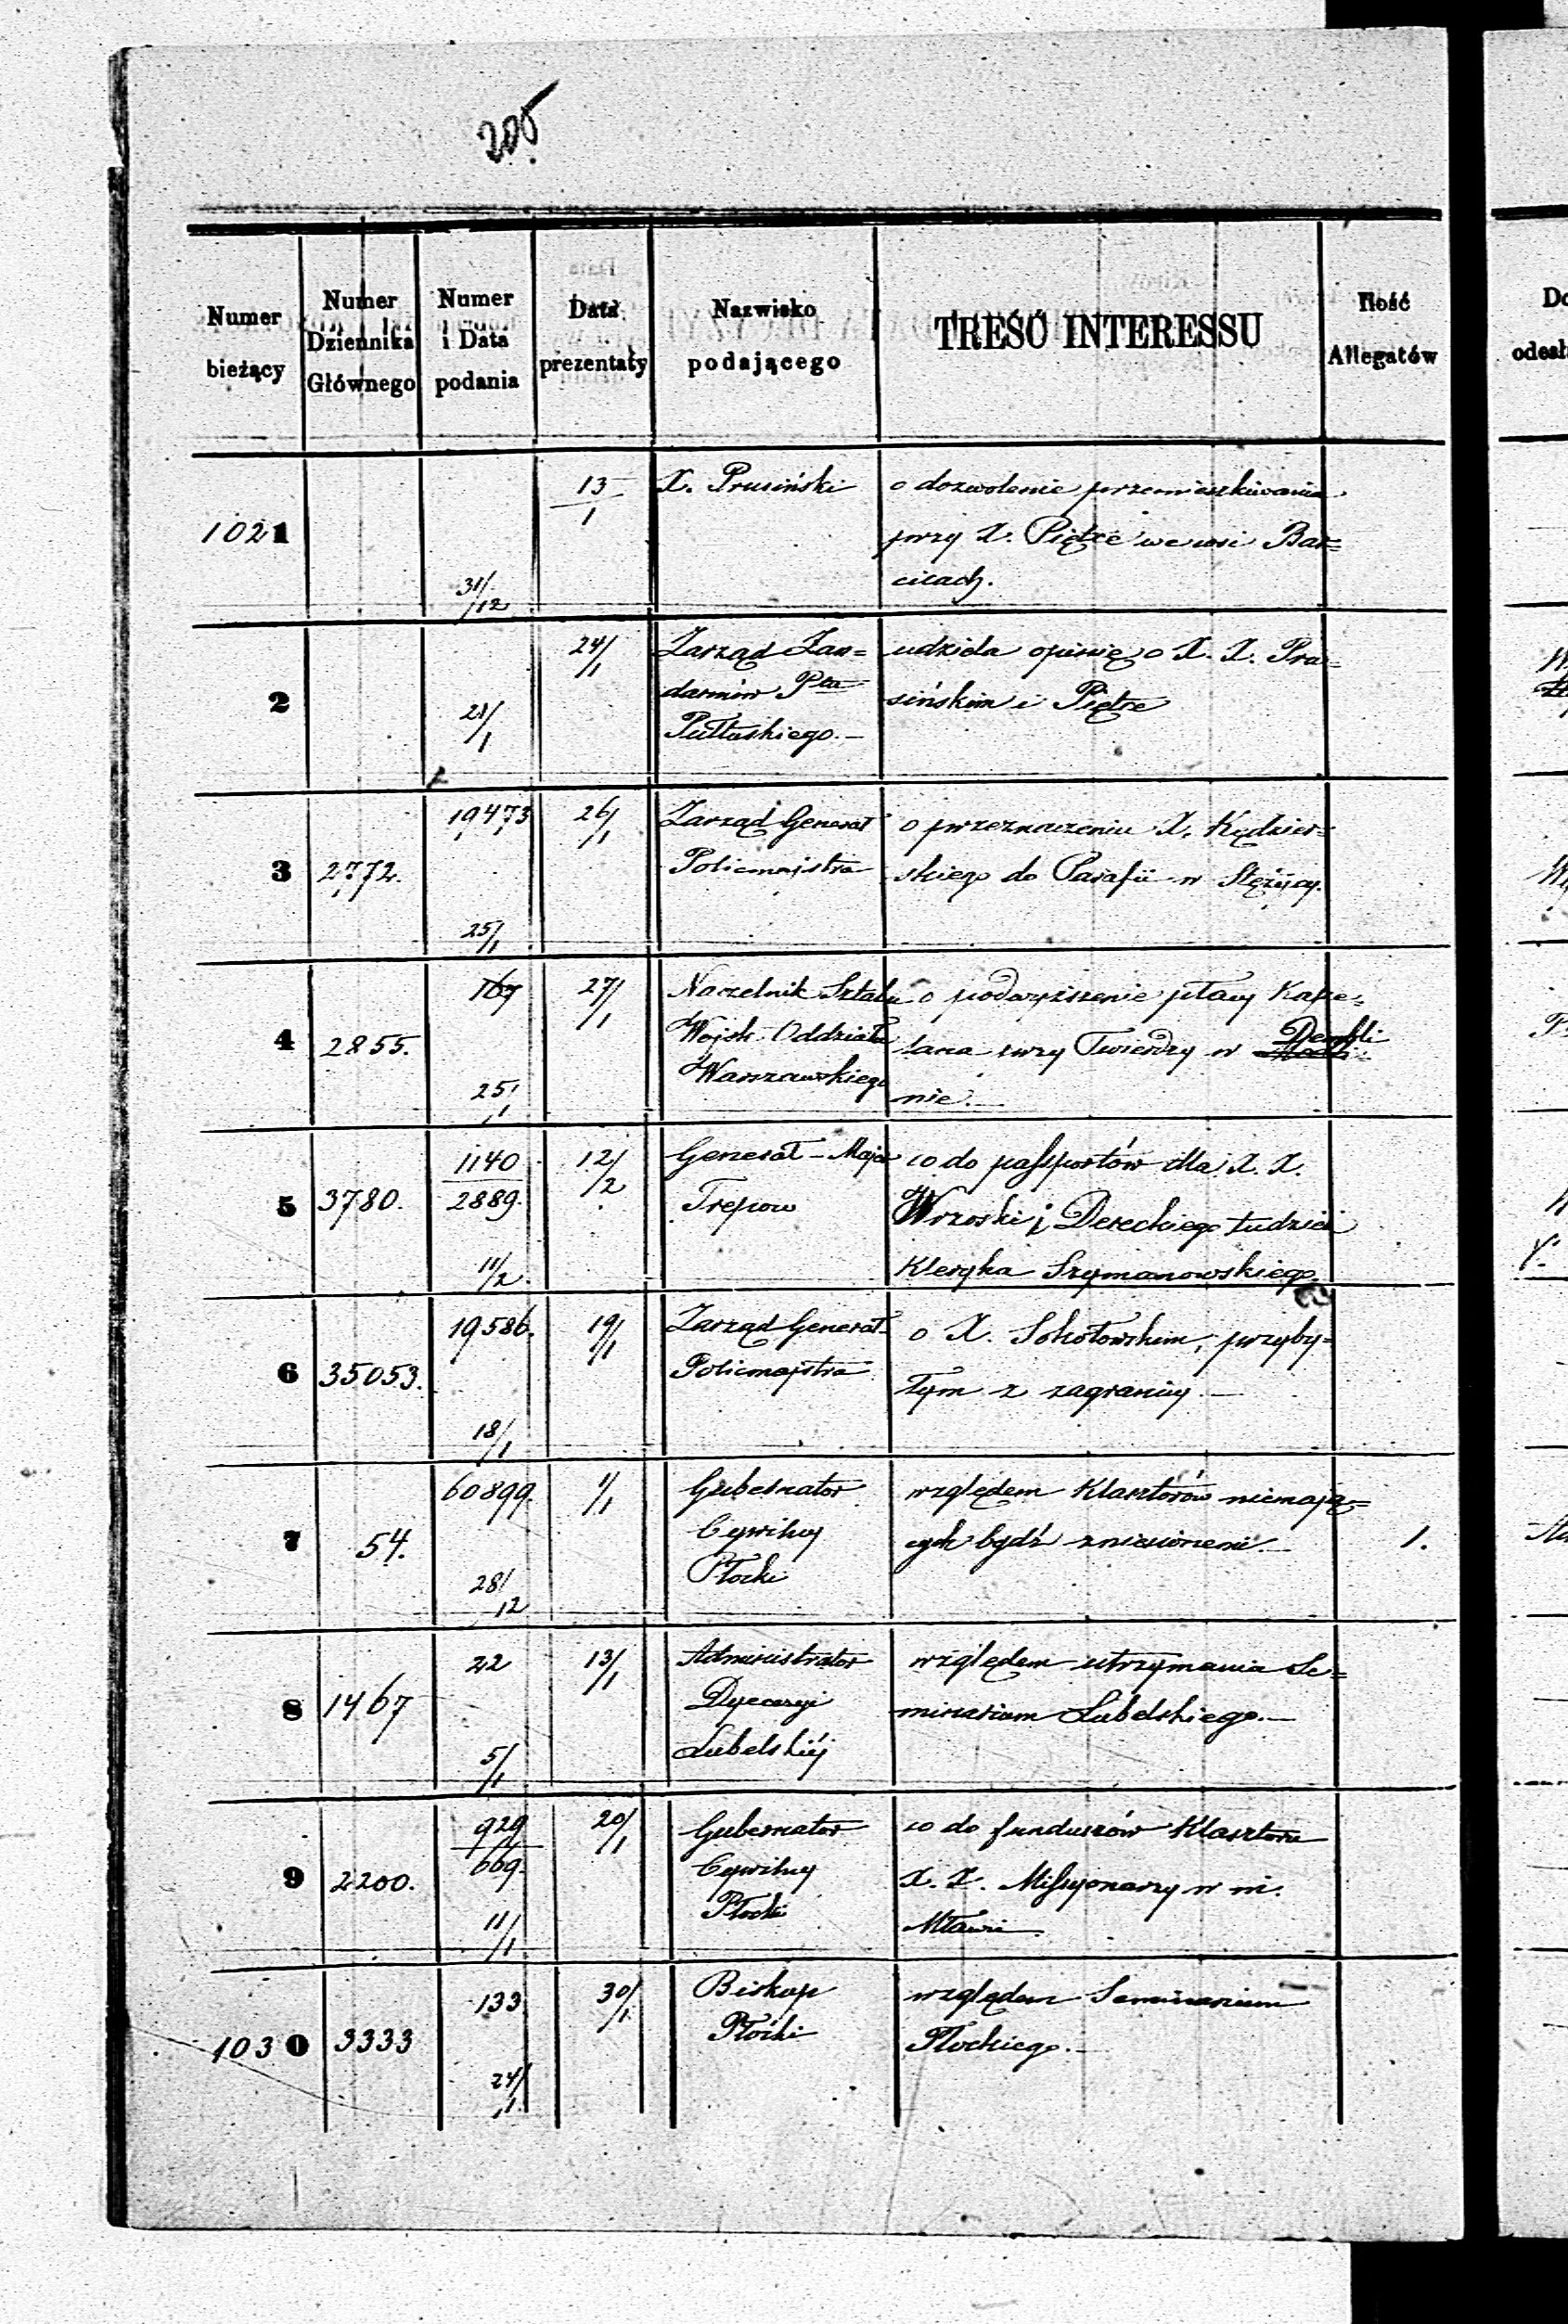 205
Numer bieżący | Numer Dziennika Głównego | Numer i Data podania | Data prezentaty | Nazwisko podającego | TREŚĆ INTERESSU | Ilość Allegatów
1021 | | 31/12 | 13/1 | X. Prusiński | o dozwolenie przemieszkiwania
przy X. Piętce we wsi Bar=
cicach.
2 | | 21/1 | 24/1 | Zarząd Żan= | udziela opinię o X. X. Pru=
darmów Ptu | sińskim i Piętce
Pułtuskiego.—
3 | 2772. | 19473 25/1 | 26/1 | Zarząd Generał | o przeznaczeniu X. Kędzier=
Policmajstra | skiego do Parafii w Stężycy.
4 | 2855. | 167 25/1 | 27/1 | Naczelnik Sztabu | o podwyższenie płacy Kape=
Wojsk Oddziału | lana przy Twierdzy w Dembli
Warszawskiego | nie.—
5 | 3780. | 1140/2889. 11/2 | 12/2 | Generał-Major | co do passportów dla X. X.
Trepow | Wrzoski i Dereckiego tudzież
Kleryka Szymanowskiego.
6 | 35053. | 19586. 18/1 | 19/1 | Zarząd Generał- | o X. Sokołowskim, przyby=
Policmajstra | łym z zagranicy.—
7 | 54. | 60899. 28/12 | 1/1 | Gubernator | względem Klasztorów niemają=
Cywilny | cych bydź zniesionemi.— | 1.
Płocki
8 | 1467 | 22 5/1 | 13/1 | Administrator | względem utrzymania Se=
Dyecezyi | minarium Lubelskiego.—
Lubelskiéj
9 | 2200. | 929/669. 11/1 | 20/1 | Gubernator | co do funduszów Klasztoru
Cywilny | X. X. Missyonarzy w m.
Płocki | Mławie.
1030 | 3333 | 133 24/1 | 30/1 | Biskup | względem Seminarium
Płocki | Płockiego.—